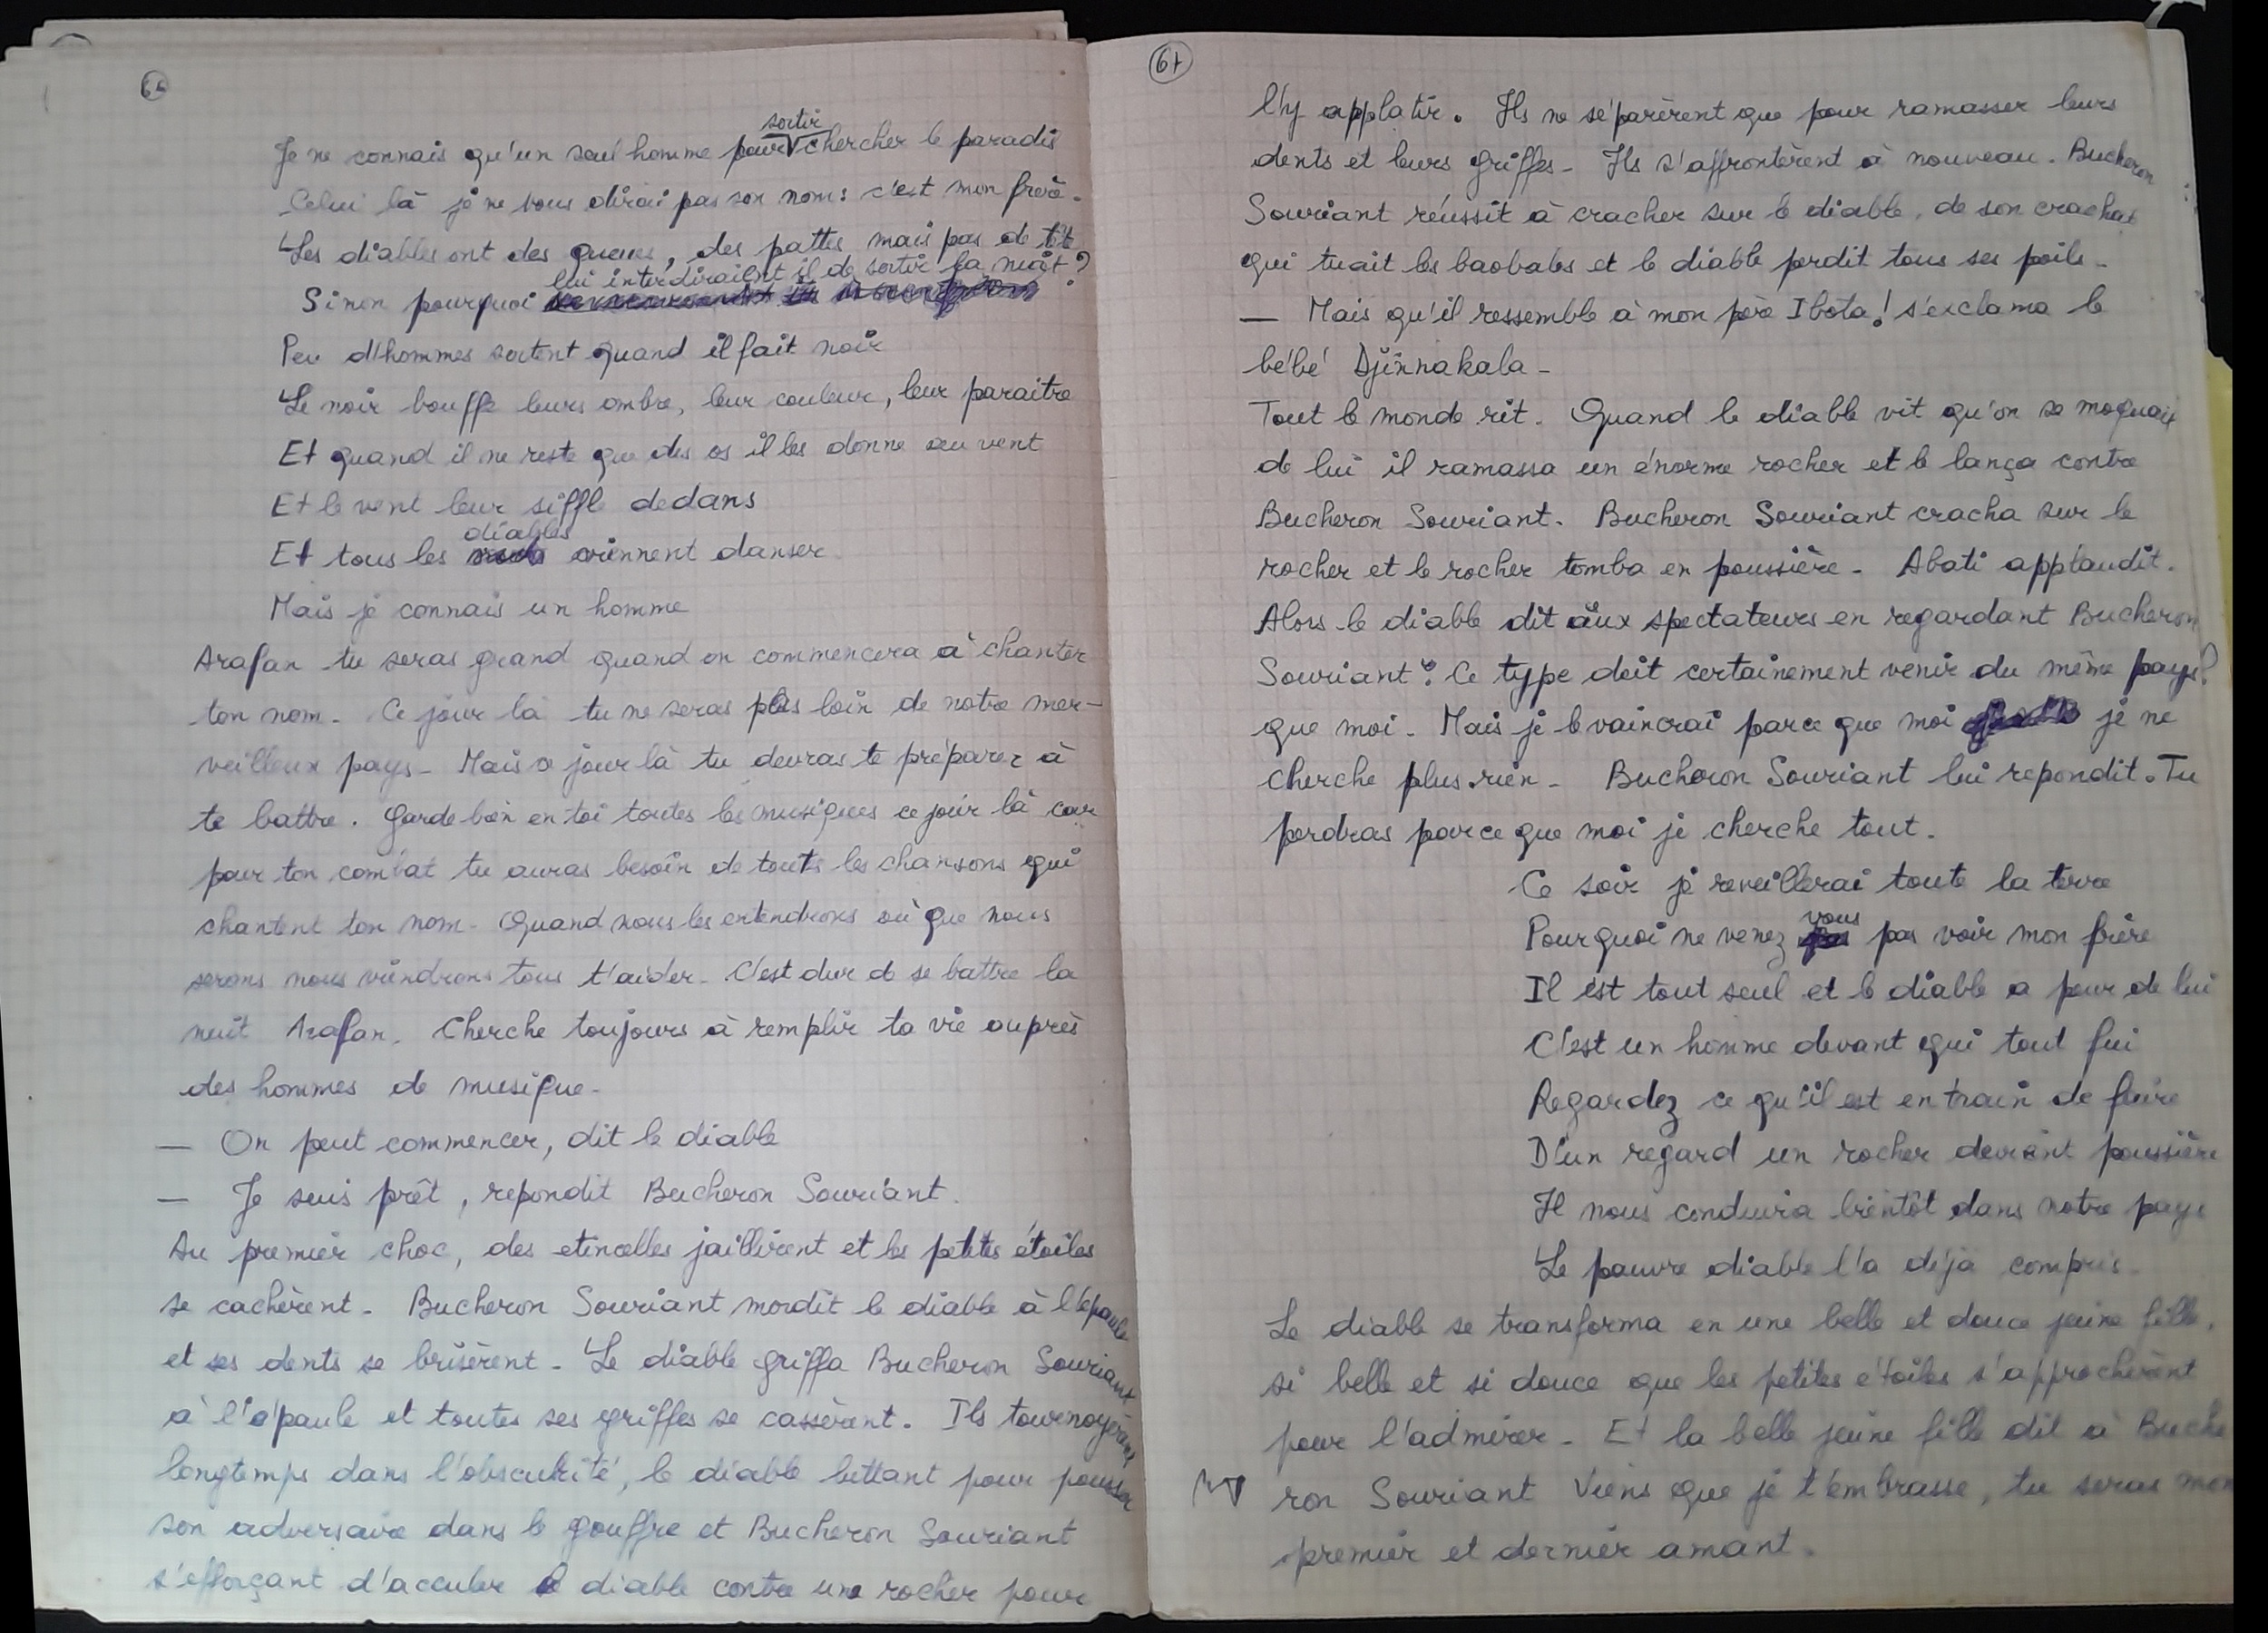 Je ne connais qu'un seul homme pour sortir chercher le paradis
Celui là je ne vous dirai pas son nom : c'est mon frère.
Les diables ont des queues, des pattes mais pas de tête
Sinon pourquoi lui interdiraient il de sortir la nuit ?
Peu d'hommes sortent quand il fait noir
Le noir bouffe leurs ombre, leur couleur, leur paraitre
Et quand il ne reste que des os il les donne au vent
Et le vent leur siffle dedans
Et tous les diables viennent danser
Mais je connais un homme
Arafan tu seras grand quand on commencera à chanter
ton nom. Ce jour là tu ne seras plus loin de notre mer-
veilleux pays. Mais ce jour là tu devras te préparer à
te battre. Garde bien en toi toutes les musiques ce jour là car
pour ton combat tu auras besoin de toutes les chansons qui
chantent ton nom. Quand nous les entendrons où que nous
serons nous viendrons tous t'aider. C'est dur de se battre la
nuit Arafan. Cherche toujours à remplir ta vie auprès
des hommes de musique.
— On peut commencer, dit le diable
— Je suis prêt, repondit Bucheron Souriant.
Au premier choc, des etincelles jaillirent et les petites étoiles
se cachèrent. Bucheron Souriant mordit le diable à l'épaule
et ses dents se brisèrent. Le diable griffa Bucheron Souriant
à l'épaule et toutes ses griffes se cassèrent. Ils tournoyèrent
longtemps dans l'obscurité, le diable luttant pour pousser
son adversaire dans le gouffre et Bucheron Souriant
s'efforçant d'acculer le diable contre une rocher pour
67
l'y applatir. Ils ne séparèrent que pour ramasser leurs
dents et leurs griffes. Ils s'affrontèrent à nouveau. Bucheron
Souriant réussit à cracher sur le diable, de son crachat
qui tuait les baobabs et le diable perdit tous ses poils.
— Mais qu'il ressemble à mon père Ibota ! s'exclama le
bébé Djinnakala.
Tout le monde rit. Quand le diable vit qu'on se moquait
de lui il ramassa un énorme rocher et le lança contre
Bucheron Souriant. Bucheron Souriant cracha sur le
rocher et le rocher tomba en poussière. Abati applaudit.
Alors le diable dit aux spectateurs en regardant Bucheron
Souriant : Ce type doit certainement venir du même pays
que moi. Mais je le vaincrai parce que moi je ne
cherche plus rien. Bucheron Souriant lui repondit. Tu
perdras parce que moi je cherche tout.
Ce soir je reveillerai toute la terre
Pourquoi ne venez vous pas voir mon frère
Il est tout seul et le diable a peur de lui
C'est un homme devant qui tout fui
Regardez ce qu'il est en train de faire
D'un regard un rocher devient poussière
Il nous conduira bientôt dans notre pays
Le pauvre diable l'a déjà compris.
Le diable se transforma en une belle et douce jeune fille,
si belle et si douce que les petites étoiles s'approchèrent
pour l'admirer. Et la belle jeune fille dit à Buche
ron Souriant Viens que je t'embrasse, tu seras mon
premier et dernier amant.